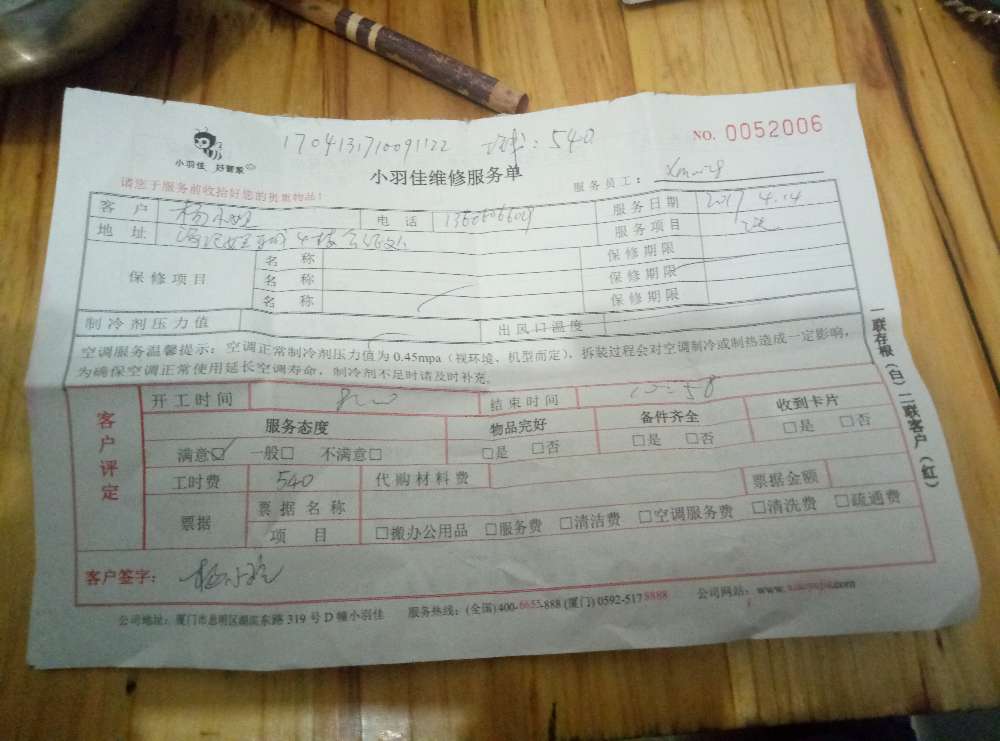 1704131710091122 :540
NO. 0052006
小羽佳 好管家
小羽佳维修服务单
请您于服务前收拾好您的贵重物品!
服务员工:
客户 电话 服务日期 2017 4.14
地址 服务项目
保修项目 名称 保修期限
名称 保修期限
名称 保修期限
制冷剂压力值 出风口温度
空调服务温馨提示:空调正常制冷剂压力值为0.45mpa(视环境、机型而定),拆装过程会对空调制冷或制热造成一定影响,
为确保空调正常使用延长空调寿命,制冷剂不足时请及时补充。
客户评定
开工时间 结束时间
服务态度 物品完好 备件齐全 收到卡片
满意☑ 一般□ 不满意□ □是 □否 □是 □否 □是 □否
工时费 540 代购材料费 票据金额
票据 票据名称
项目 □搬办公用品 □服务费 □清洁费 □空调服务费 □清洗费 □疏通费
客户签字:
公司地址:厦门市思明区湖滨东路319号D幢小羽佳 服务热线:(全国)400-6655-888(厦门)0592-5178888 公司网站:www.
一联存根(白)二联客户(红)